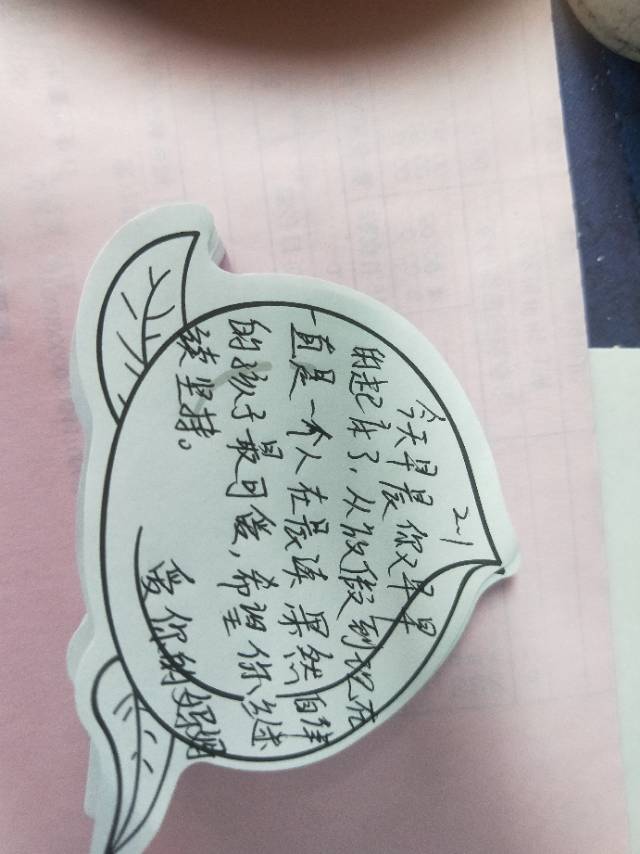 2-1
今天早晨你又早早
的起床了，从放假到现在
一直是一个人在晨读果然自律
的孩子最可爱，希望你继
续坚持。
爱你的妈妈